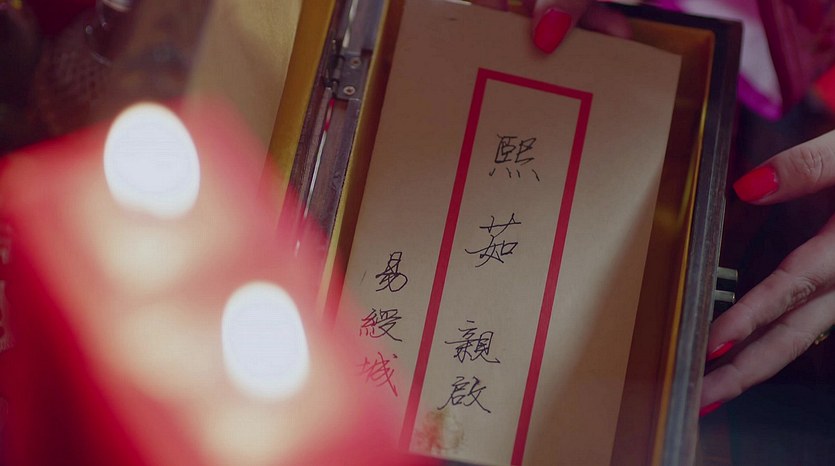 熙茹親啟
易綬城